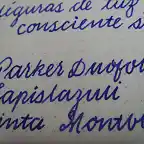 figuras de luz
consciente s
Parker Duofol
Lapislazuli
inta Montb